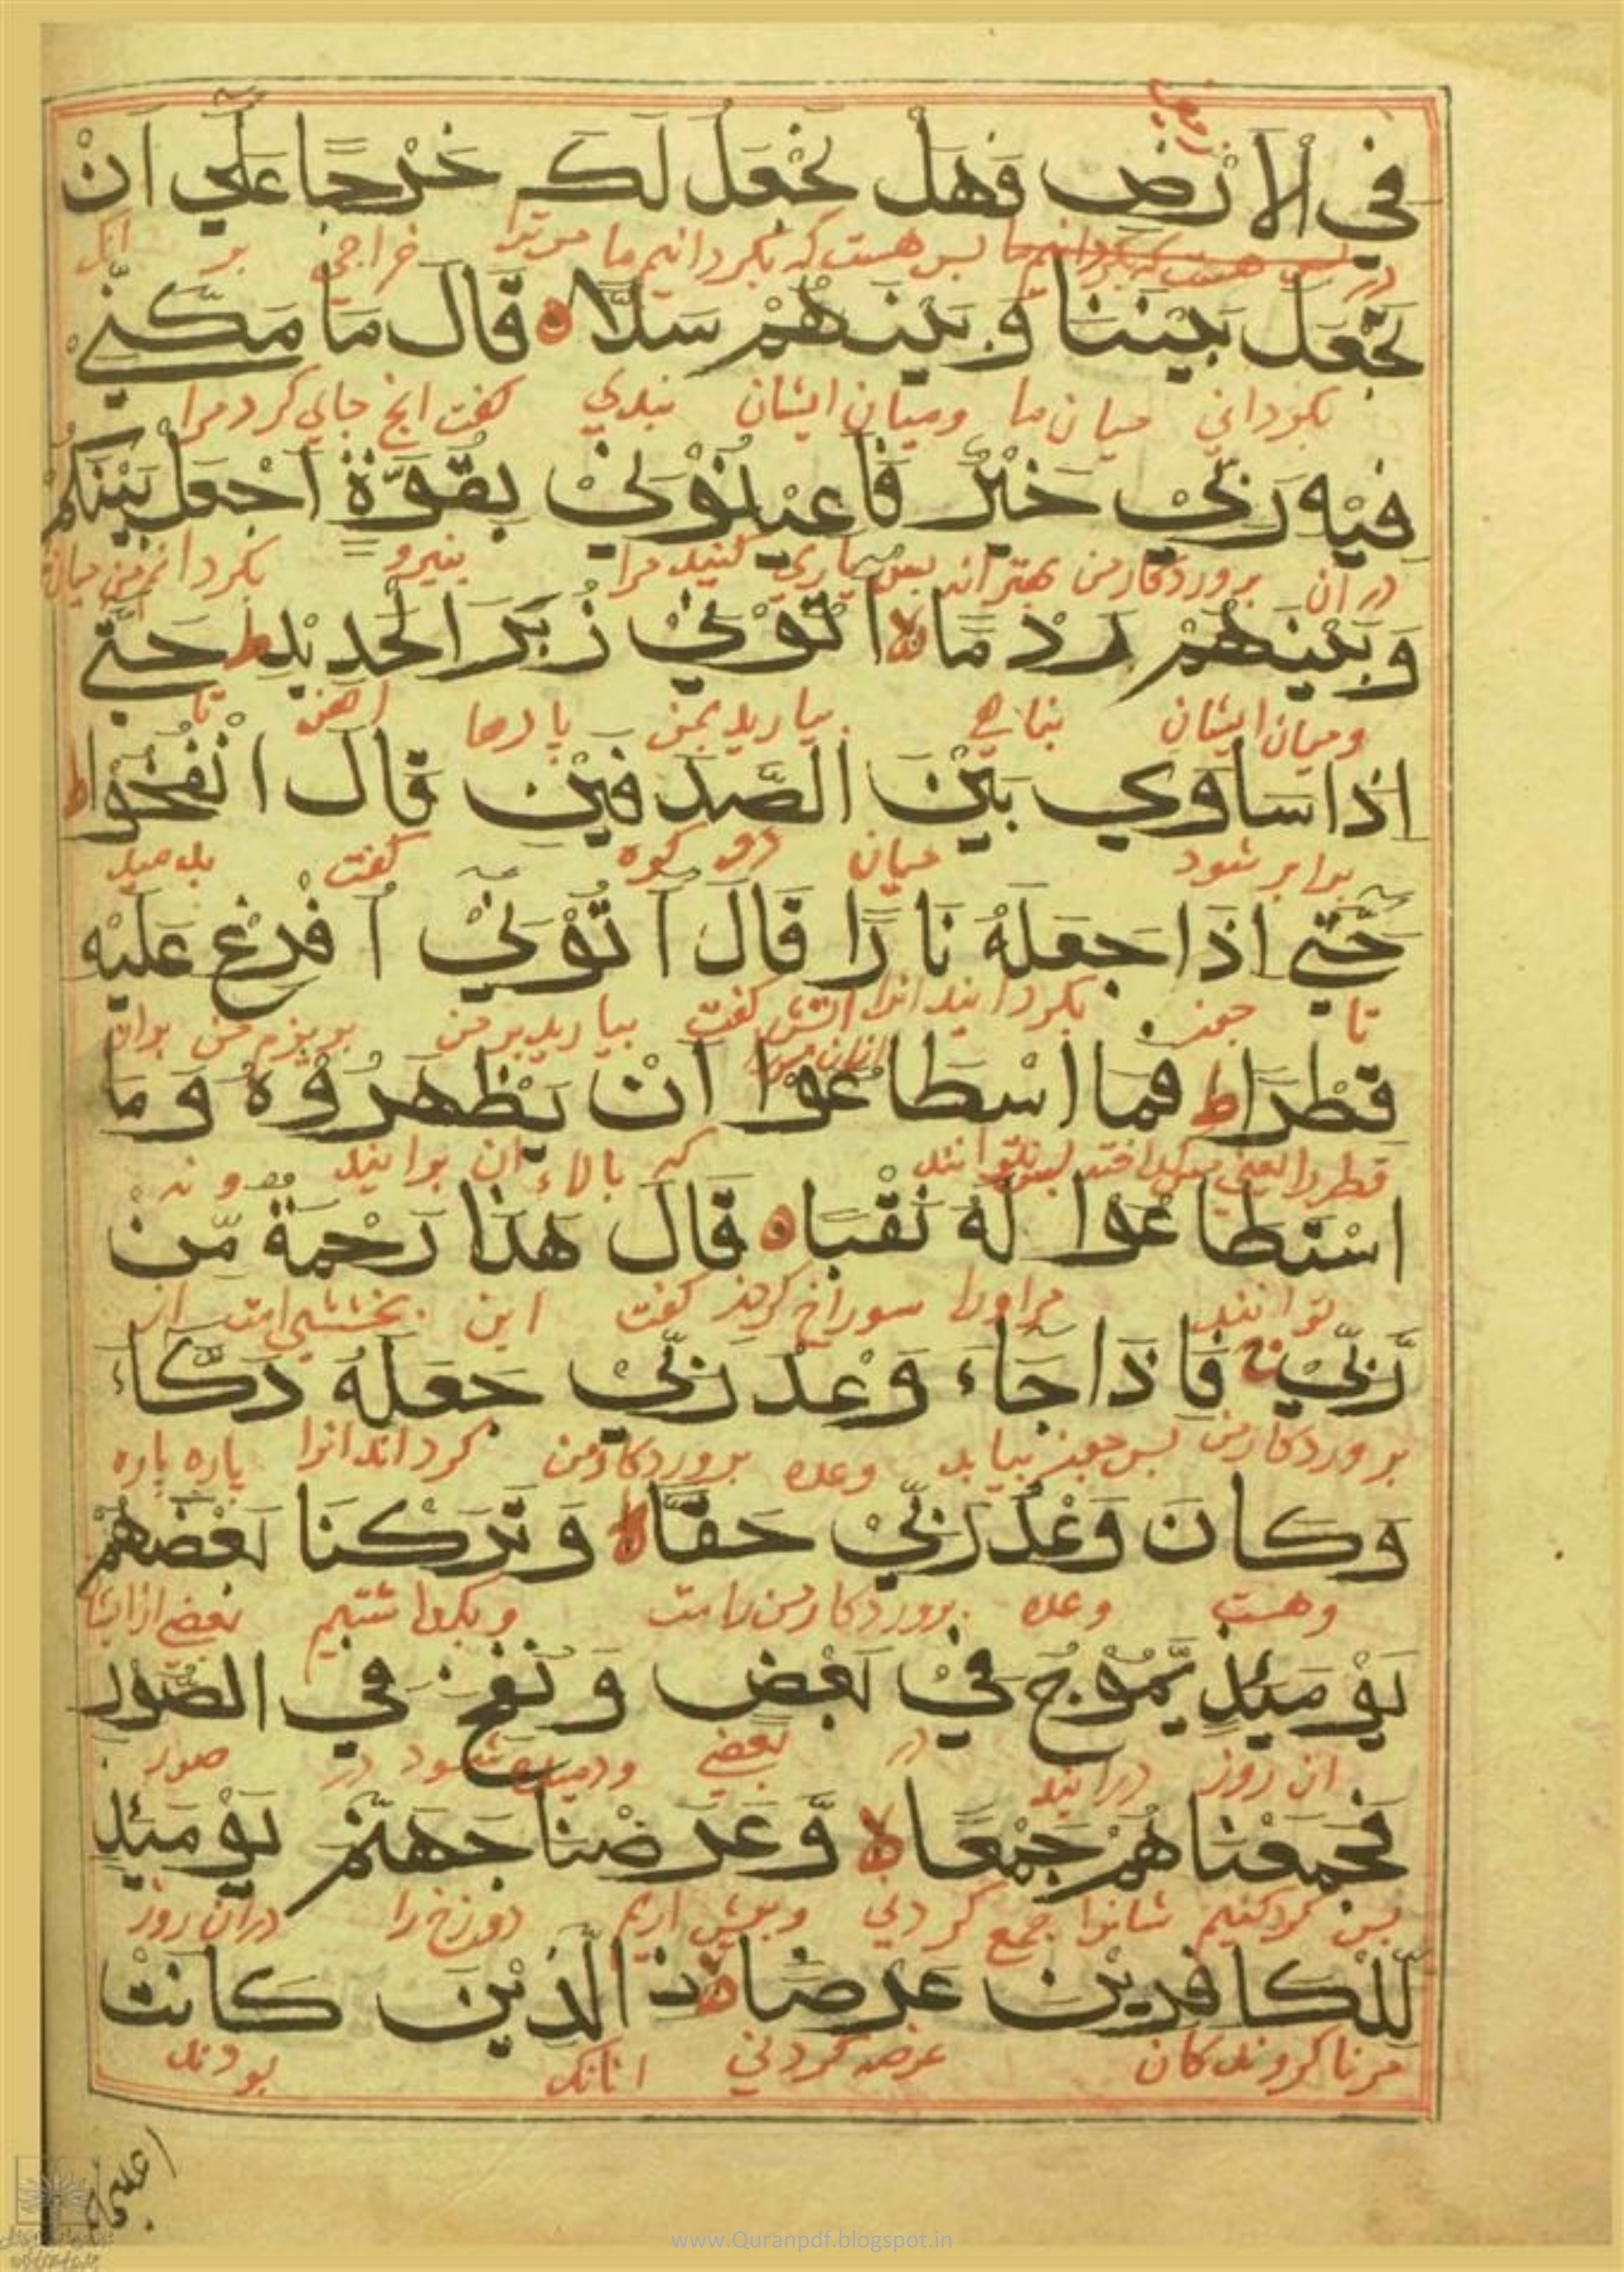 في الارْضِ فَهَلْ نَجْعَلُ لَكَ خَرْجًا عَلٰي اَنْ
در پس هست که بگردانیم ما مر ترا خراجی بر انک
تَجْعَلَ بَيْنَنَا وَبَيْنَهُمْ سَدًّا ه قَالَ مَا مَكَّنِّي
بگردانی میان ما و میان ایشان بندی گفت انچ جای کرد مرا
فِيْهِ رَبِّيْ خَيْرٌ فَاَعِيْنُوْنِيْ بِقُوَّةٍ اَجْعَلْ بَيْنَكُمْ
در ان پروردگار من بهتر اند پس یاری کنید مرا بنیرو بگردانم من میان
وَبَيْنَهُمْ رَدْمًا لا اٰتُوْنِيْ زُبَرَ الْحَدِيْدِ ط حَتّٰي
و میان ایشان بیارید بمن پارها اهن تا
اِذَا سَاوٰي بَيْنَ الصَّدَفَيْنِ قَالَ انْفُخُوْا ط
برابر شود میان دو کوه گفت بدمید
حَتّٰي اِذَا جَعَلَهُ نَارًا قَالَ اٰتُوْنِيْ اُفْرِغْ عَلَيْهِ
تا چون بگردانید انرا اتش گفت بیارید بر من بریزم من بران
قِطْرًا ط فَمَا اسْطَاعُوْا اَنْ يَظْهَرُوْهُ وَمَا
که بالاء ان برایند و نه
اسْتَطَاعُوْا لَهُ نَقْبًا ه قَالَ هٰذَا رَحْمَةٌ مِّنْ
توانند مر اورا سوراخ کردند گفت این بخششی است از
رَّبِّيْ ج فَاِذَا جَاءَ وَعْدُ رَبِّيْ جَعَلَهُ دَكَّاءَ
پروردگار من پس چون بیاید وعده پروردگار من گرداند انرا پاره پاره
وَكَانَ وَعْدُ رَبِّيْ حَقًّا لا وَتَرَكْنَا بَعْضَهُمْ
و هست وعده پروردگار من راست و بگذاشتیم بعضی از ایشا
يَوْمَئِذٍ يَّمُوْجُ فِيْ بَعْضٍ وَنُفِخَ فِي الصُّوْرِ
ان روز در ایند در بعضی و دمیده شود در صور
فَجَمَعْنَاهُمْ جَمْعًا لا وَّعَرَضْنَا جَهَنَّمَ يَوْمَئِذٍ
پس گرد کنیم شانرا جمع کردنی و پیش اریم دوزخ را دران روز
لِّلْكَافِرِيْنَ عَرْضًا ن الَّذِيْنَ كَانَتْ
مر ناگروندگان عرضه کردنی انانک بودند
اعينهم
www.Quranpdf.blogspot.in